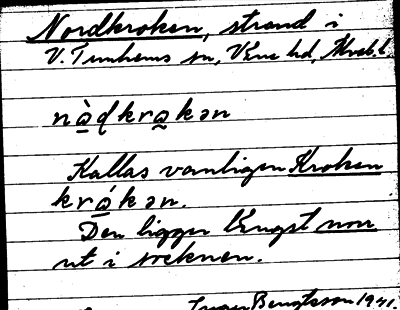 Nordkroken, strand i
V. Tunhems sn, Väne hd, Älvsb. l.
nàɖkrakən
Kallas vanligen Kroken
krákən.
Den ligger längst norr
ut i socknen.
Bengtsson 1941.